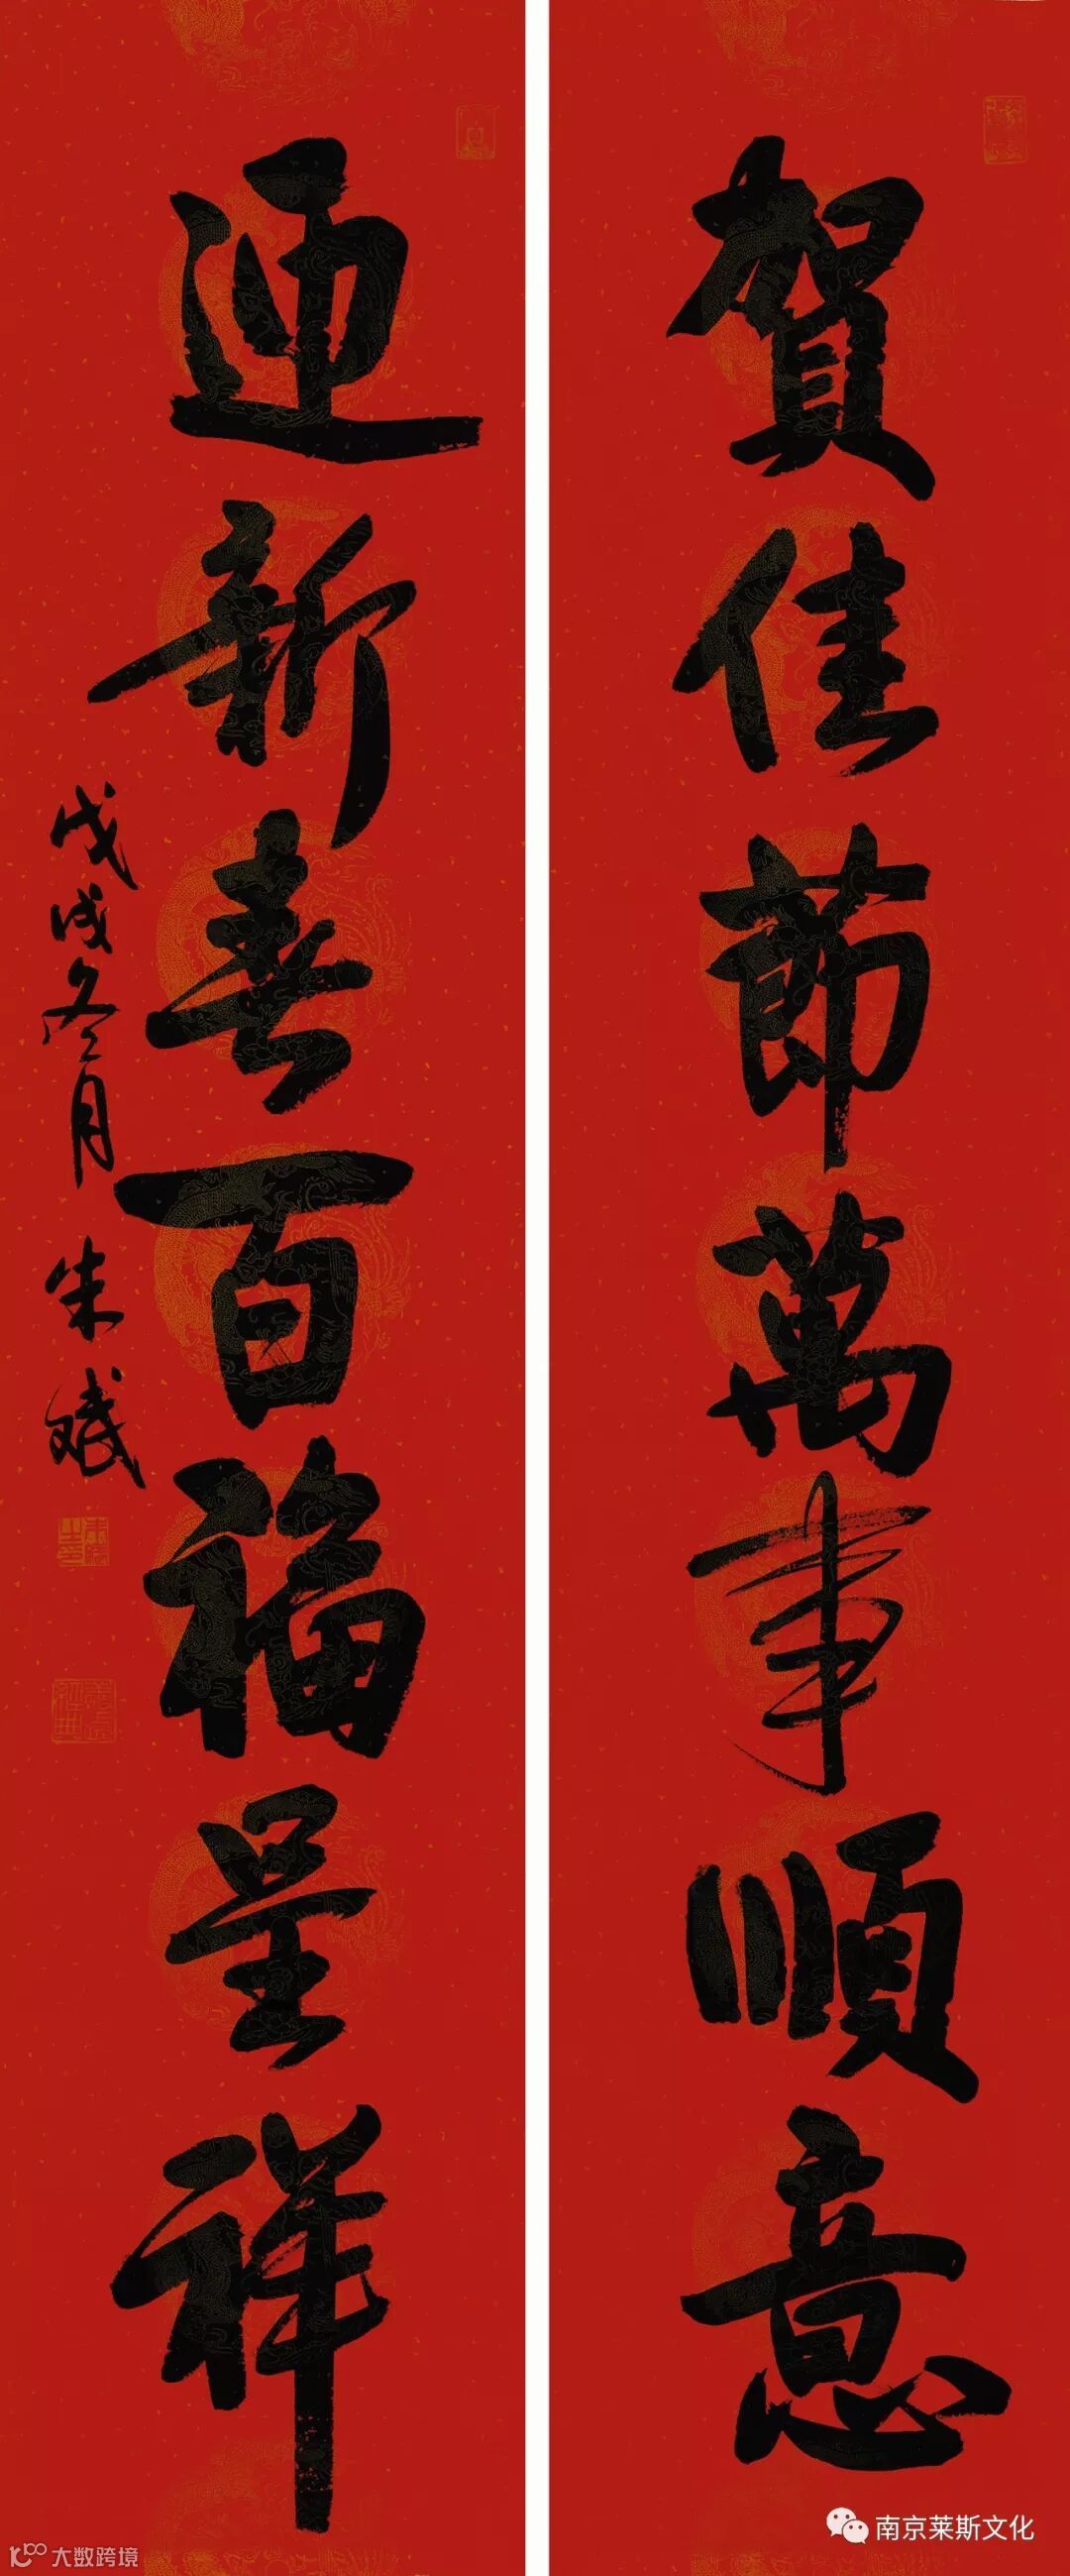 賀佳節萬事順意
迎新春百福呈祥
戊戌冬月 朱斌
南京莱斯文化
大数跨境